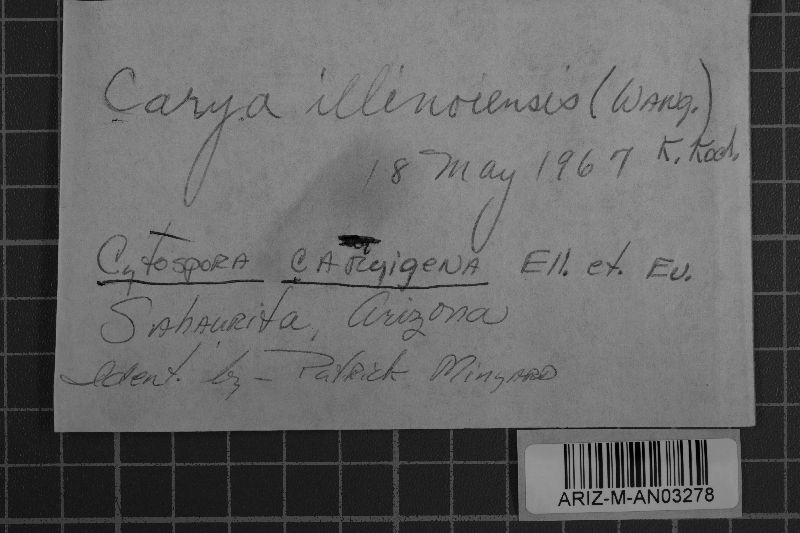 Carya illinoiensis (Wang.)
K. Koch.
18 May 1967
Cytospora caryigena Ell. et. Ev.
Sahaurita, Arizona
Ident. by - Patrick Mingard
ARIZ-M-AN03278